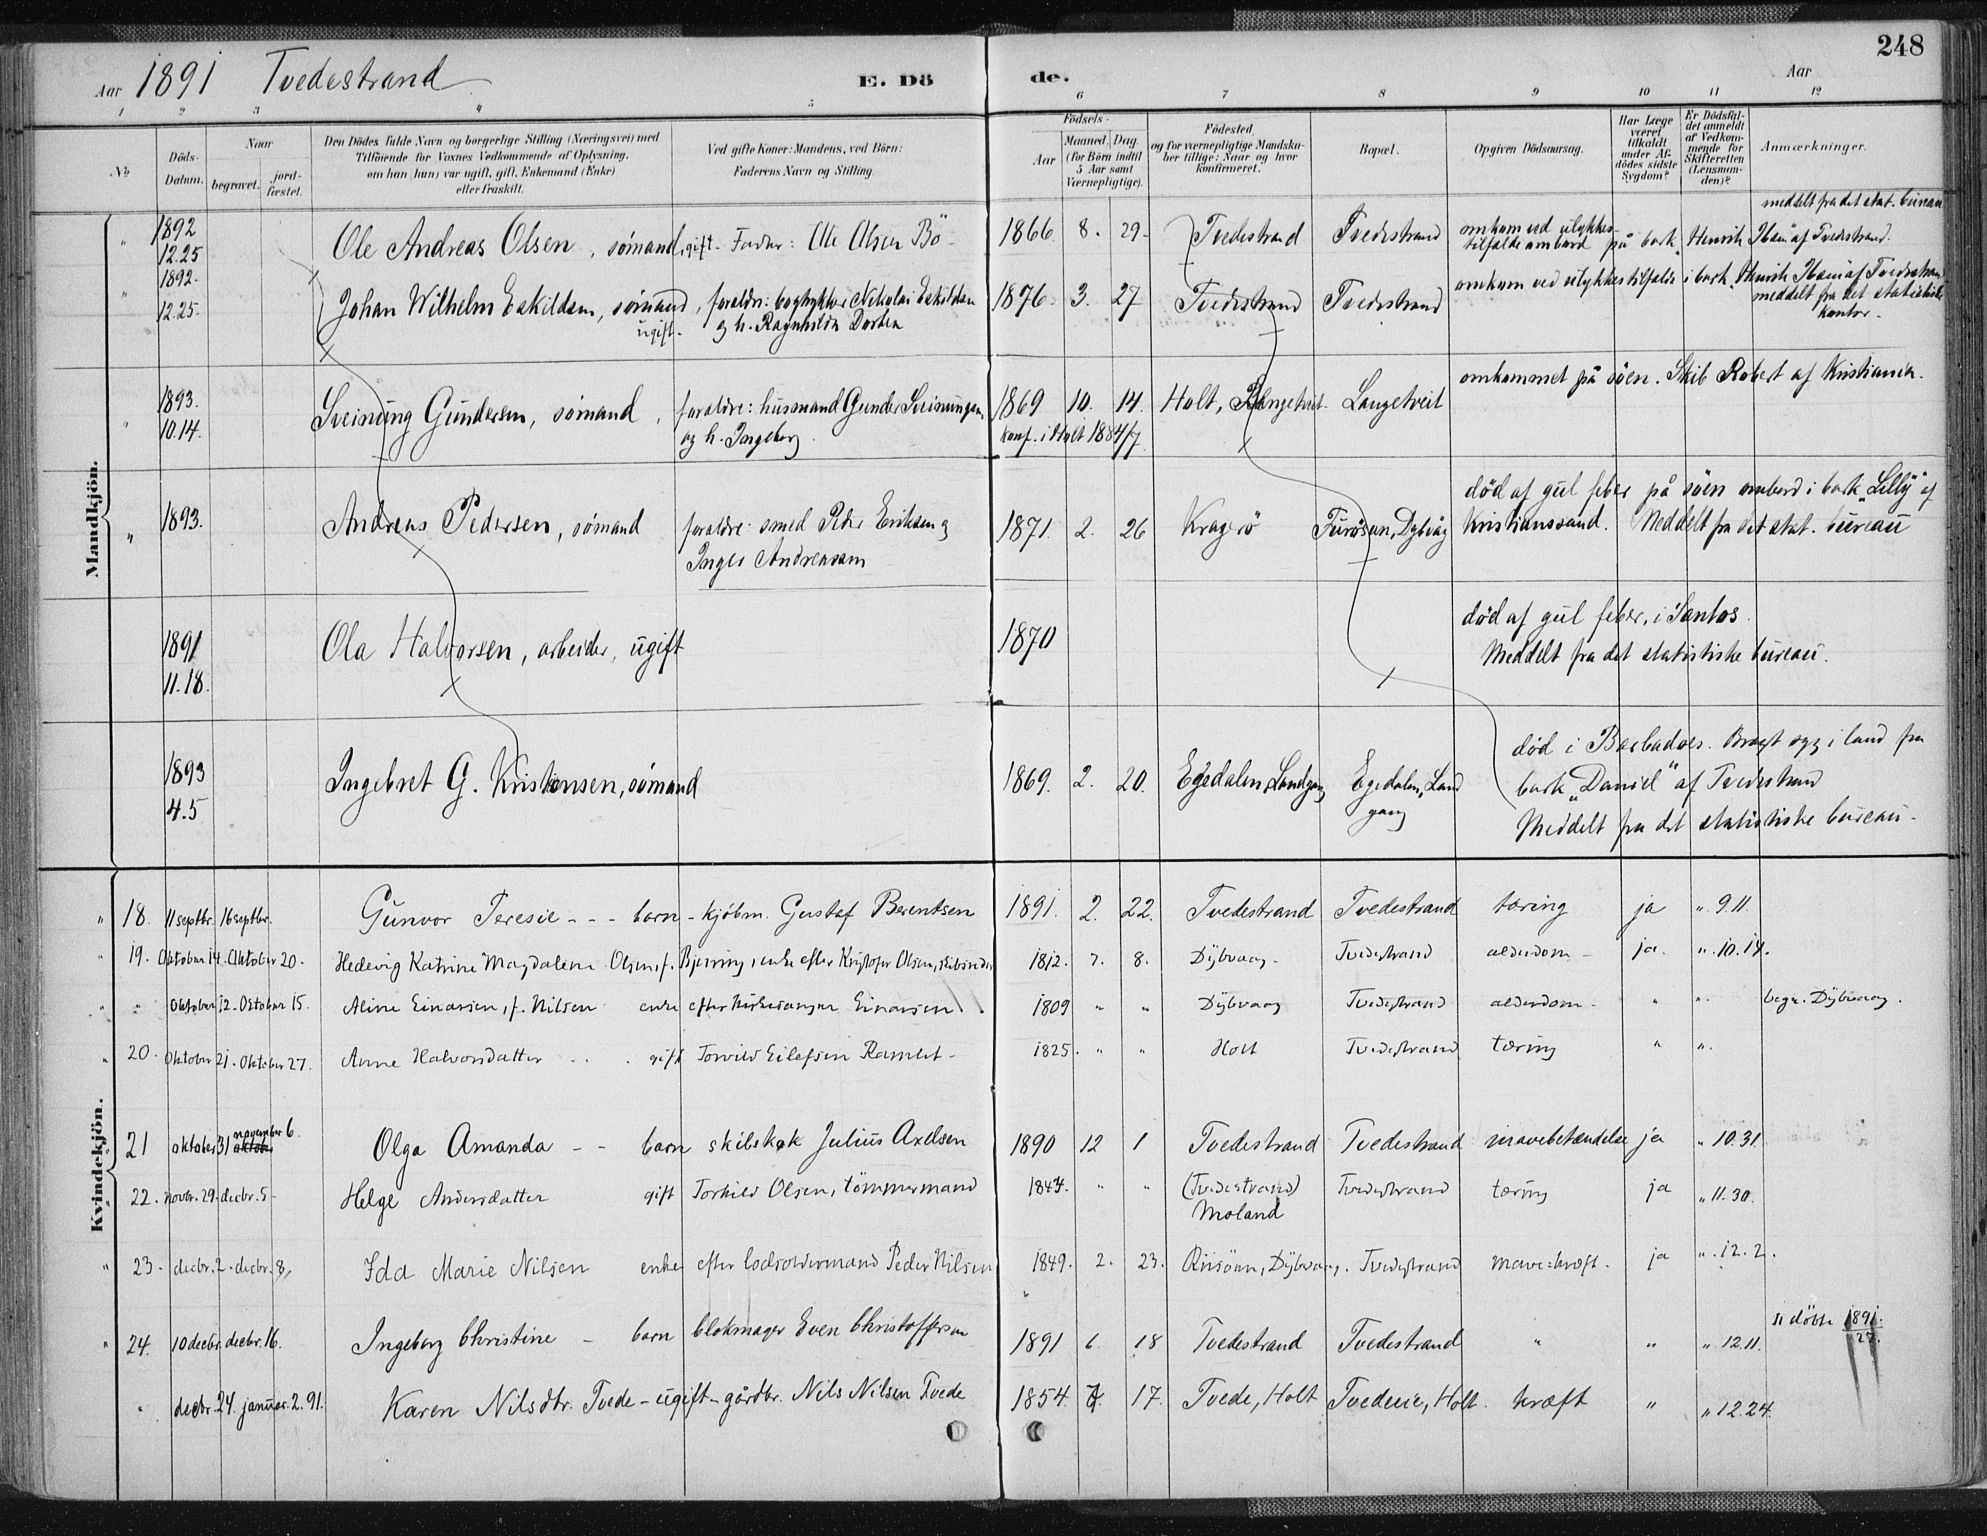 248
Aar 1891 Tvedestrand E. Dö de. Aar
1 2 3 4 5 6 7 8 9 10 11 12
No
Döds-Datum.
Naar
begravet.
jord-fæstet.
Den Dödes fulde Navn og borgerlige Stilling (Næringsvei) med
Tilföiende for Voxnes Vedkommende af Oplysning,
om han (hun) var ugift, gift, Enkemand (Enke)
eller fraskilt.
Ved gifte Koner: Mandens, ved Börn:
Faderens Navn og Stilling.
Födsels-
Aar
Maaned. Dag
(for Börn indtil
5 Aar samt
Værnepligtige).
Födested,
og for værnepligtige Mandska-
ber tillige: Naar og hvor
konfirmeret.
Bopæl.
Opgiven Dödsaarsag.
Har Læge
været
tilkaldt
under Af-
dödes sidste
Sygdom?
Er Dödsfal-
det anmeldt
af Vedkom-
mende for
Skifteretten
(Lensman-
den)?
Anmærkninger.
Mandkjön.
meddelt fra det stat. bureau
" 1892 12.25 Ole Andreas Olsen, sömand, gift - Fader: Ole Olsen Bö - 1866. 8. 29. Tvedestrand Tvedestrand omkom ved ulykkes-
tilfælde ombord på bark "Henrik Ibsen" af Tvedestrand.
" 1892. 12.25. Johan Wilhelm Eskildsen, sömand, ugift. forældre: bogtrykker Nicholai Eskildsen
og h. Ragnhilda Dortea 1876. 3. 27 Tvedestrand Tvedestrand omkom ved ulykkestilfælde i bark "Henrik Ibsen" af Tvedestrand
meddelt fra det statistiske
kontor.
" 1893. 10.14. Sveinung Gundersen, sömand, forældre: husmand Gunder Sveinungsen
og h. Ingeborg. 1869 10. 14. Holt, Langetveit. Langetveit omkommet på söen. Skib Robert af Kristiania.
konf. i Holt 1884/7
" 1893. Andreas Pedersen, sömand forældre: smed Peder Eriksen og
Inger Andreassen 1871. 2. 26 Kragerö Furösun, Dybvåg död af gul feber på söen ombord i bark "Lilly" af
Kristianssand. Meddelt fra det stat. bureau
1891 11.18. Ola Halvorsen, arbeider, ugift 1870 död af gul feber, i Santos.
Meddelt fra det statistiske bureau.
1893 4.5 Ingebret G. Kristensen, sömand 1869. 2. 20. Egedalen, Landgang Egedalen, Land
gang död i Barbados. Bragt syg i land fra
bark "Daniel" af Tvedestrand
Meddelt fra det statistiske bureau.
Kvindekjön.
" 18. 11 septbr. 16 septbr. Gunvor Teresie - - - barn - kjöbm. Gustaf Berentsen 1891. 2. 22. Tvedestrand Tvedestrand tæring ja ". 9.11.
" 19. Oktober 14. Oktober 20. Hedevig Katrine Magdalene Olsen, f. Bjerring, enke efter Kristofer Olsen, skibsreder 1812. 7. 8. Dÿbvaag. Tvedestrand alderdom - ja. ". 10.14.
" - Oktober 12. Oktober 15. Aline Einarsen, f. Nilsen enke efter kirkesanger Einarsen. 1809 " " Dÿbvaag Tvedestrand alderdom - " ". begr. Dÿbvaag.
" 20. Oktober 21. Oktober 27. Anne Halvorsdatter - . gift Torvild Eilefsen Ramlet - 1825. " " Holt Tvedestrand tæring " ".
21 oktober 31 oktober november 6. Olga Amanda - - barn skibskok Julius Axelsen 1890 12 1 Tvedestrand Tvedestrand mavebetændelse ja " 10.31.
" 22. novbr. 29. decbr. 5 - Helge Andersdatter gift Torkild Olsen, tömmermand 1847. " " (Tvedestrand)
Moland Tvedestrand tæring ja " 11.30.
" 23. decbr. 2. decbr. 8, Ida Marie Nilsen enke efter lodsoldermand Peder Nilsen 1849. 2. 23. Riisöen, Dÿbvaag. Tvedestrand mave=kræft. ja ". 12.2.
" 24. 10 decbr. decbr. 16. Ingeborg Christine - barn blokmager Even Christoffersen 1891 6. 18 Tvedestrand Tvedestrand " " " 12.11. si döbte 1891.
27.
" decbr. 24. januar. 2. 91. Karen Nilsdtr. Tvede - ugift - gårdbr. Nils Nilsen Tvede 1854. 7. 17. Tvede, Holt Tvedeeie, Holt. kræft " " 12.24.